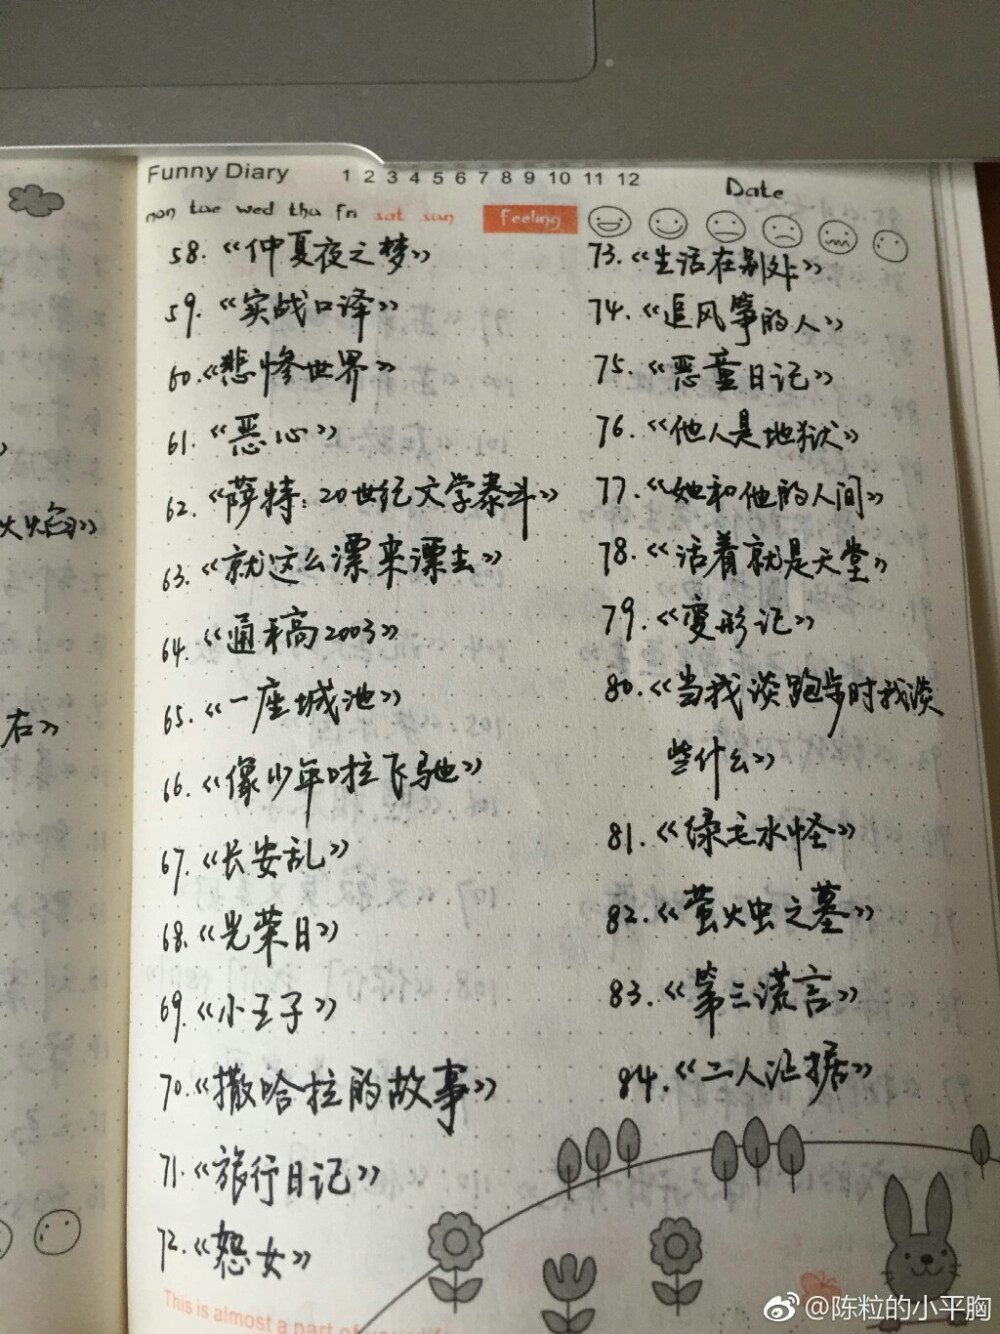 Funny Diary
1 2 3 4 5 6 7 8 9 10 11 12
Date
mon tue wed thu fri sat sun
Feeling
58.《仲夏夜之梦》
59.《实战口译》
60.《悲惨世界》
61.《恶心》
62.《萨特：20世纪文学泰斗》
63.《就这么漂来漂去》
64.《通稿2003》
65.《一座城池》
66.《像少年啦飞驰》
67.《长安乱》
68.《光荣日》
69.《小王子》
70.《撒哈拉的故事》
71.《旅行日记》
72.《怨女》
73.《生活在别处》
74.《追风筝的人》
75.《恶童日记》
76.《他人是地狱》
77.《她和他的人间》
78.《活着就是天堂》
79.《变形记》
80.《当我谈跑步时我谈
些什么》
81.《绿毛水怪》
82.《萤火虫之墓》
83.《第三谎言》
84.《二人证据》
火焰》
右》
This is almost a part of
@陈粒的小平胸